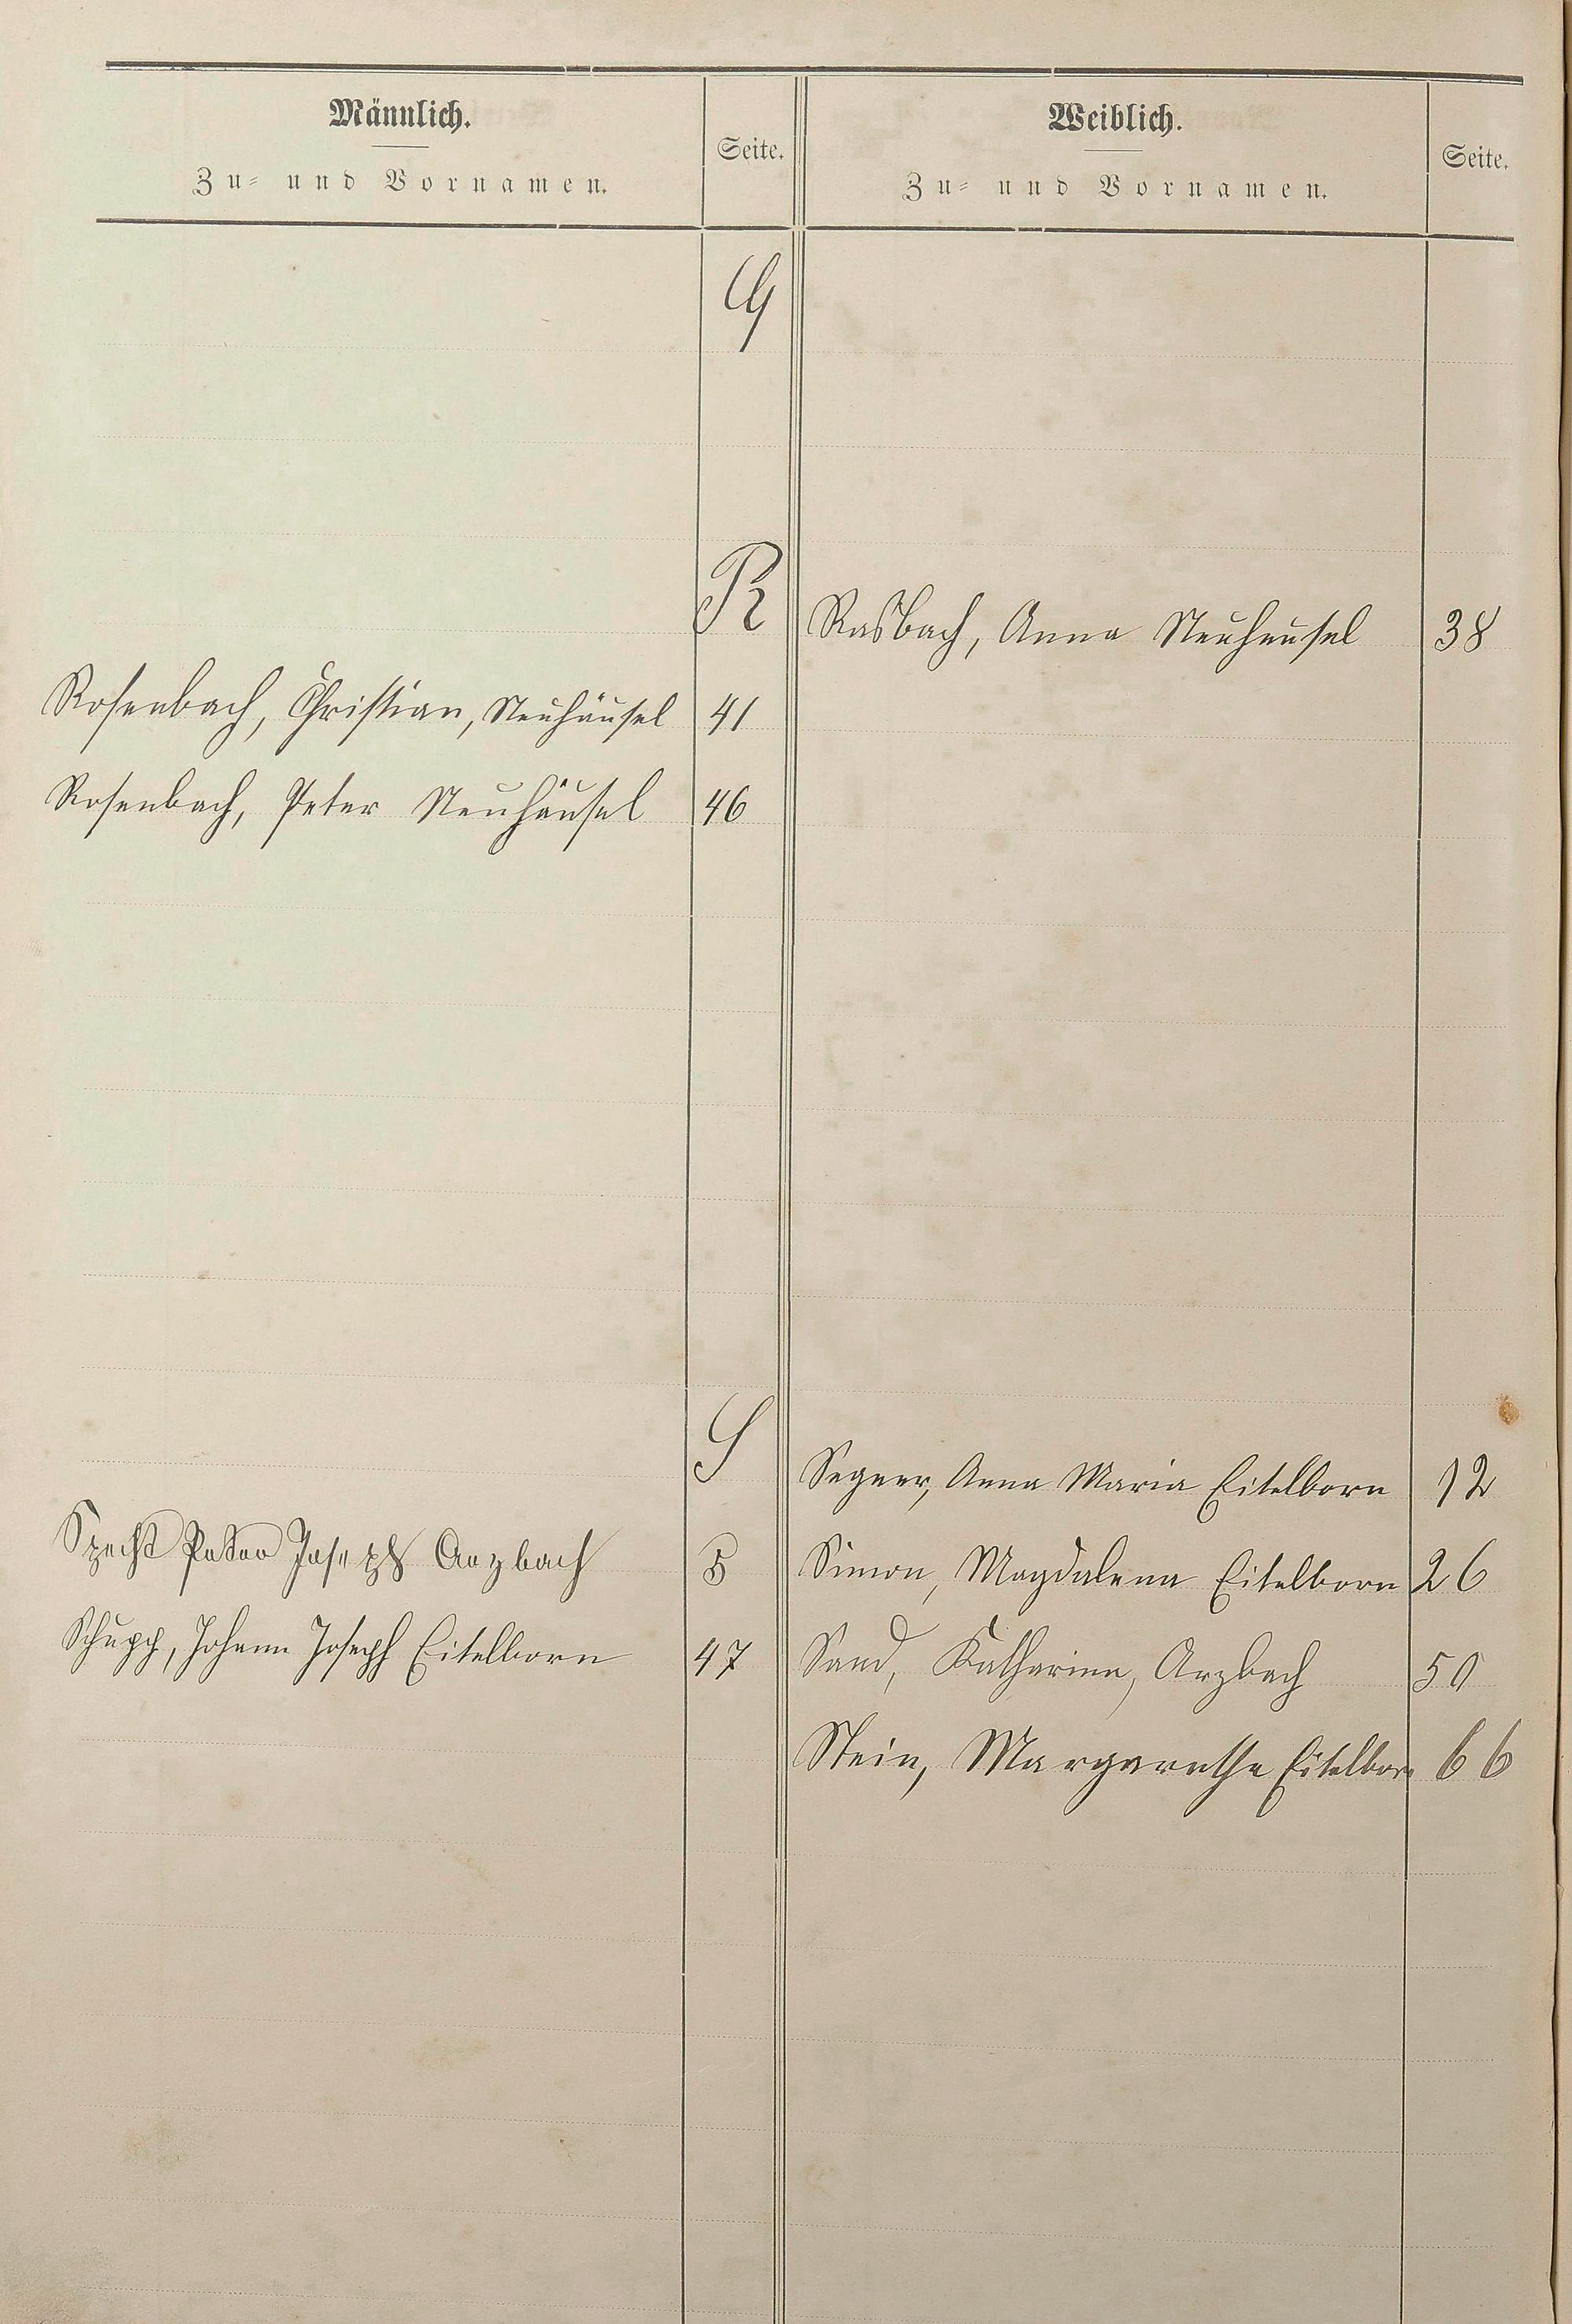 Männlich.
Zu- und Vornamen.
Seite.
Weiblich.
Zu- und Vornamen.
Seite.
Q
R
Rasbach, Anna Neuheusel 38
Rosenbach, Christian, Neuhäusel 41
Rosenbach, Peter Neuhäusel 46
S
Segner, Anna Maria Eitelborn 12
Specht Peter Joseph Arzbach 5
Simon, Magdalena Eitelborn 26
Schupp, Johann Joseph Eitelborn 47
Sand, Katharina, Arzbach 50
Stein, Margarethe Eitelborn 66